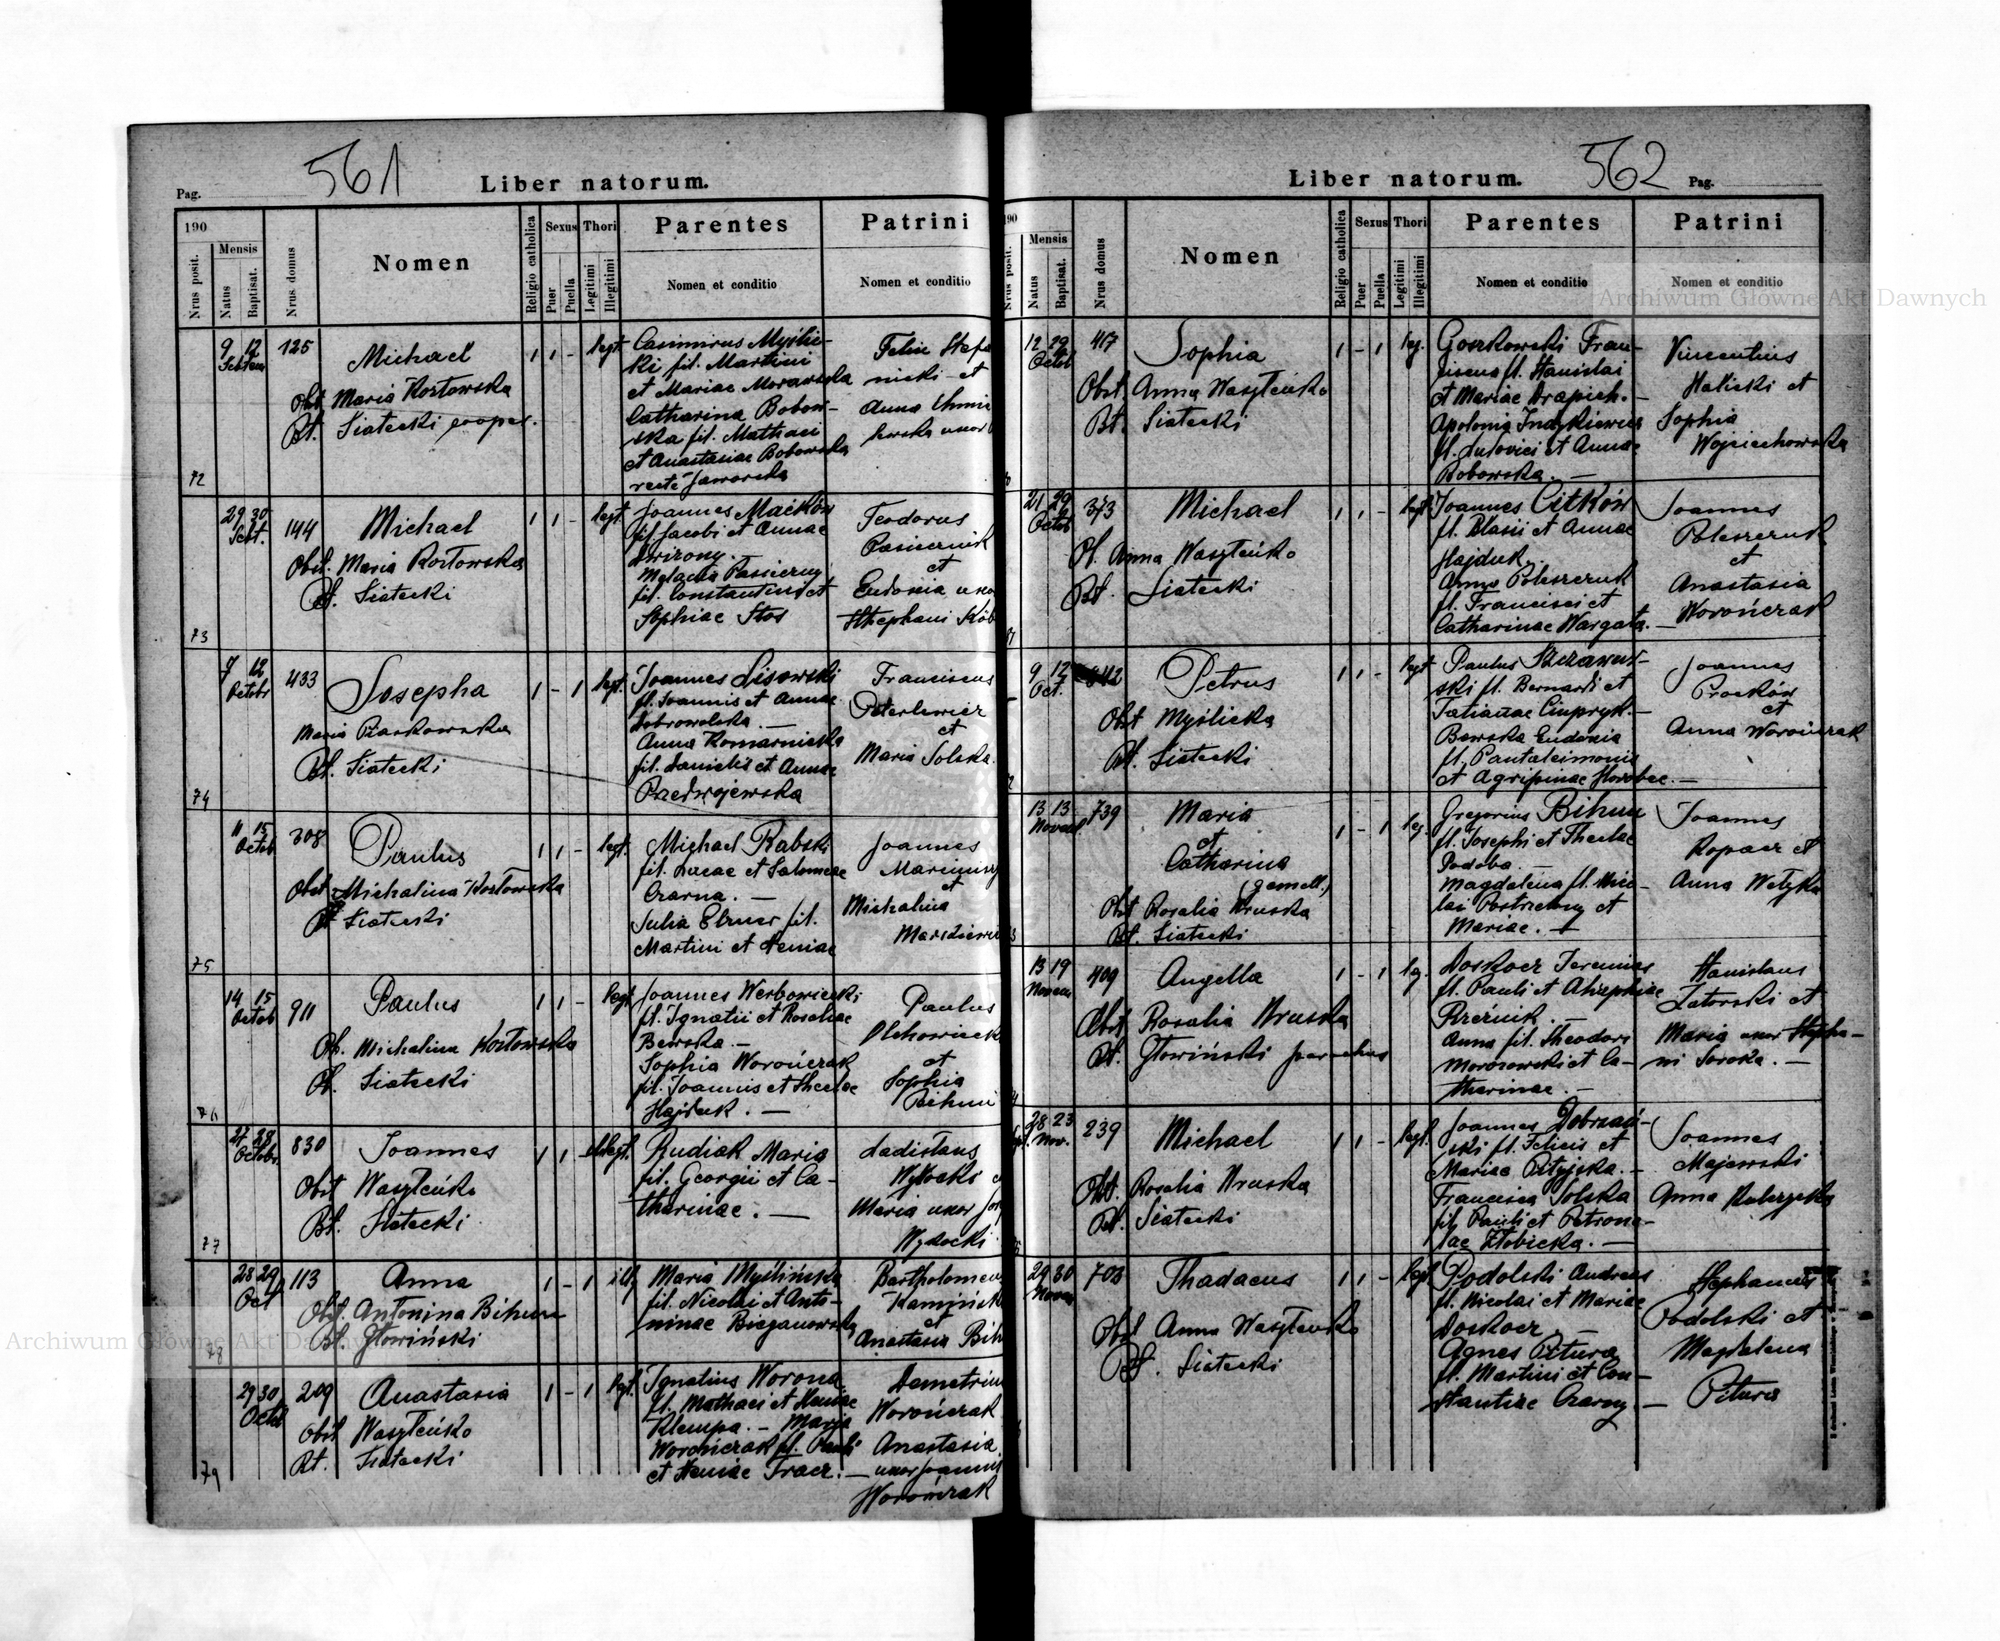 561
Pag.
Liber natorum.
190
Nrus posit.
Mensis
Natus
Baptisat.
Nrus domus
Nomen
Religio catholica
Sexus
Puer
Puella
Thori
Legitimi
Illegitimi
Parentes
Nomen et conditio
Patrini
Nomen et conditio
72
9 12
125
Michael
Obst. Maria Kostowska
Bt. Siatecki cooper.
1 1 - legt.
Casimirus Myślic-
ki fil. Martini
et Mariae Morawska
Catharina Bobow-
ska fil. Mathaei
et Anastasiae Bobowska
recte Jaworska
Felix
nicki et
Anna
73
29 30
Sebt.
144
Michael
Obst. Maria Kostowska
Bt. Siatecki
1 1 - legt.
Joannes Maćków
fil Jacobi et Annae
fil. Constantini et
Sophiae Stos
Teodorus
et
Eudoxia
Stephani
74
7 12
Octobr
433
Josepha
Maria
Bt. Siatecki
1 - 1 legt.
Joannes Lisowski
fl. Joannis et Annae
Dobrowolska. —
Anna Komarnicka
fil. Danielis et Annae
Przedwojewska
Franciscus
et
Maria Solska.
75
11 15
Octob
308
Paulus
Obst. Michalina Kostowska
Bt Siatecki
1 1 - legt.
Michael Rabski
fil. Lucae et Salomeae
Czarna. —
Julia Elzner fil.
Martini et Xeniae
Joannes
et
Michalina
76
14 15
Octob
911
Paulus
Ob. Michalina Kostowska
Bt. Siatecki
1 1 - legt.
Joannes Werbowiecki
fl. Ignatii et Rosaliae
Bewska. —
Sophia Worończak
fil. Joannis et Theclae
Hajduk. —
Paulus
et
Sophia
Bihun
77
27 28
Octobr.
830
Joannes
Obst Wasyleńko
Bt. Siatecki
1 1 - illegt.
Rudiak Maria
fil. Georgii et Ca-
tharinae. —
Ladislaus
Wysocki
Maria uxor
Wysocki
78
28 29
Oct
113
Anna
Obst. Antonina Bihun
Bt. Głowiński
1 - 1 illg
Maria Myślińska
fil. Nicolai et Anto-
ninae Bieganowska
Bartholomeus
et
Anastasia
79
29 30
Octob
209
Anastasia
Obst Wasyleńko
Bt. Siatecki
1 - 1 legt.
Ignatius Worona
fl. Mathaei et Xeniae
Klempa. — Marya
Worończak fl. Pauli
et Xeniae Tracz. —
Demetrius
Worończak
Anastasia
uxor Joannis
Worończak
562
Liber natorum.
Pag.
190
Nrus posit.
Mensis
Natus
Baptisat.
Nrus domus
Nomen
Religio catholica
Sexus
Puer
Puella
Thori
Legitimi
Illegitimi
Parentes
Nomen et conditio
Patrini
Nomen et conditio
12 29
Octob
417
Sophia
Obst. Anna Wasyleńko
Bt. Siatecki
1 - 1 leg.
Goszkowski Fran-
ciscus fl. Stanislai
et Mariae Drapich. —
Apolonia Indykiewicz
fl. Ludovici et Annae
Bobowska. —
Vincentius
Halicki et
Sophia
Wojciechowska
21 29
Octob
373
Michael
Ob. Anna Wasyleńko
Bt. Siatecki
1 1 - legt.
Joannes Citków
fl. Blasii et Annae
Hajduk.
Anna Poleszczuk
fl. Francisci et
Catharinae Wargata. —
Joannes
Poleszczuk
et
Anastasia
Worończak
9 12
Oct.
Petrus
Obst Myślicka
Bt. Siatecki
1 1 - legt
Paulus
ski fl. Bernardi et
Tatianae
Bewska Eudoxia
fl. Pantaleimonis
et Agripinae Horobec. —
Joannes
Proćków
et
Anna Worończak
13 13
Novemb
739
Maria
et
Catharina
(gemell.)
Obst Rosalia Hruska
Bt. Siatecki
1 - 1 leg.
Gregorius Bihun
fl. Josephi et Theclae
Dodoba. —
Magdalena fl. Nico-
lai et
Mariae. —
Joannes
Kopacz et
Anna
13 19
Novem
409
Angella
Obst Rosalia Hruska
Bt. Głowiński parochus
1 - 1 lg.
Doskocz Jeremias
fl. Pauli et
Anna fil. Theodori
Morozowski et Ca-
tharinae. —
Stanislaus
Zatorski et
Maria uxor Stepha-
ni Soroka. —
28 23
Nov.
239
Michael
Obst. Rosalia Hruska
Bt. Siatecki
1 1 - legt.
Joannes Dobrzań-
ski fl. Felicis et
Mariae
Francisca Solska
fil Pauli et Petrone-
lae Złobicka. —
Joannes
Majewski
Anna
29 30
Novem
703
Thadaeus
Obst Anna Wasyleńko
Bt. Siatecki
1 1 - legt.
Podolski Andreas
fl. Nicolai et Mariae
Doskocz. —
Agnes Pitura
fl. Martini et Con-
stantiae Czarny. —
Stephanus
Podolski et
Magdalena
Pitura
Archiwum Główne Akt Dawnych
Archiwum Główne Akt Dawnych